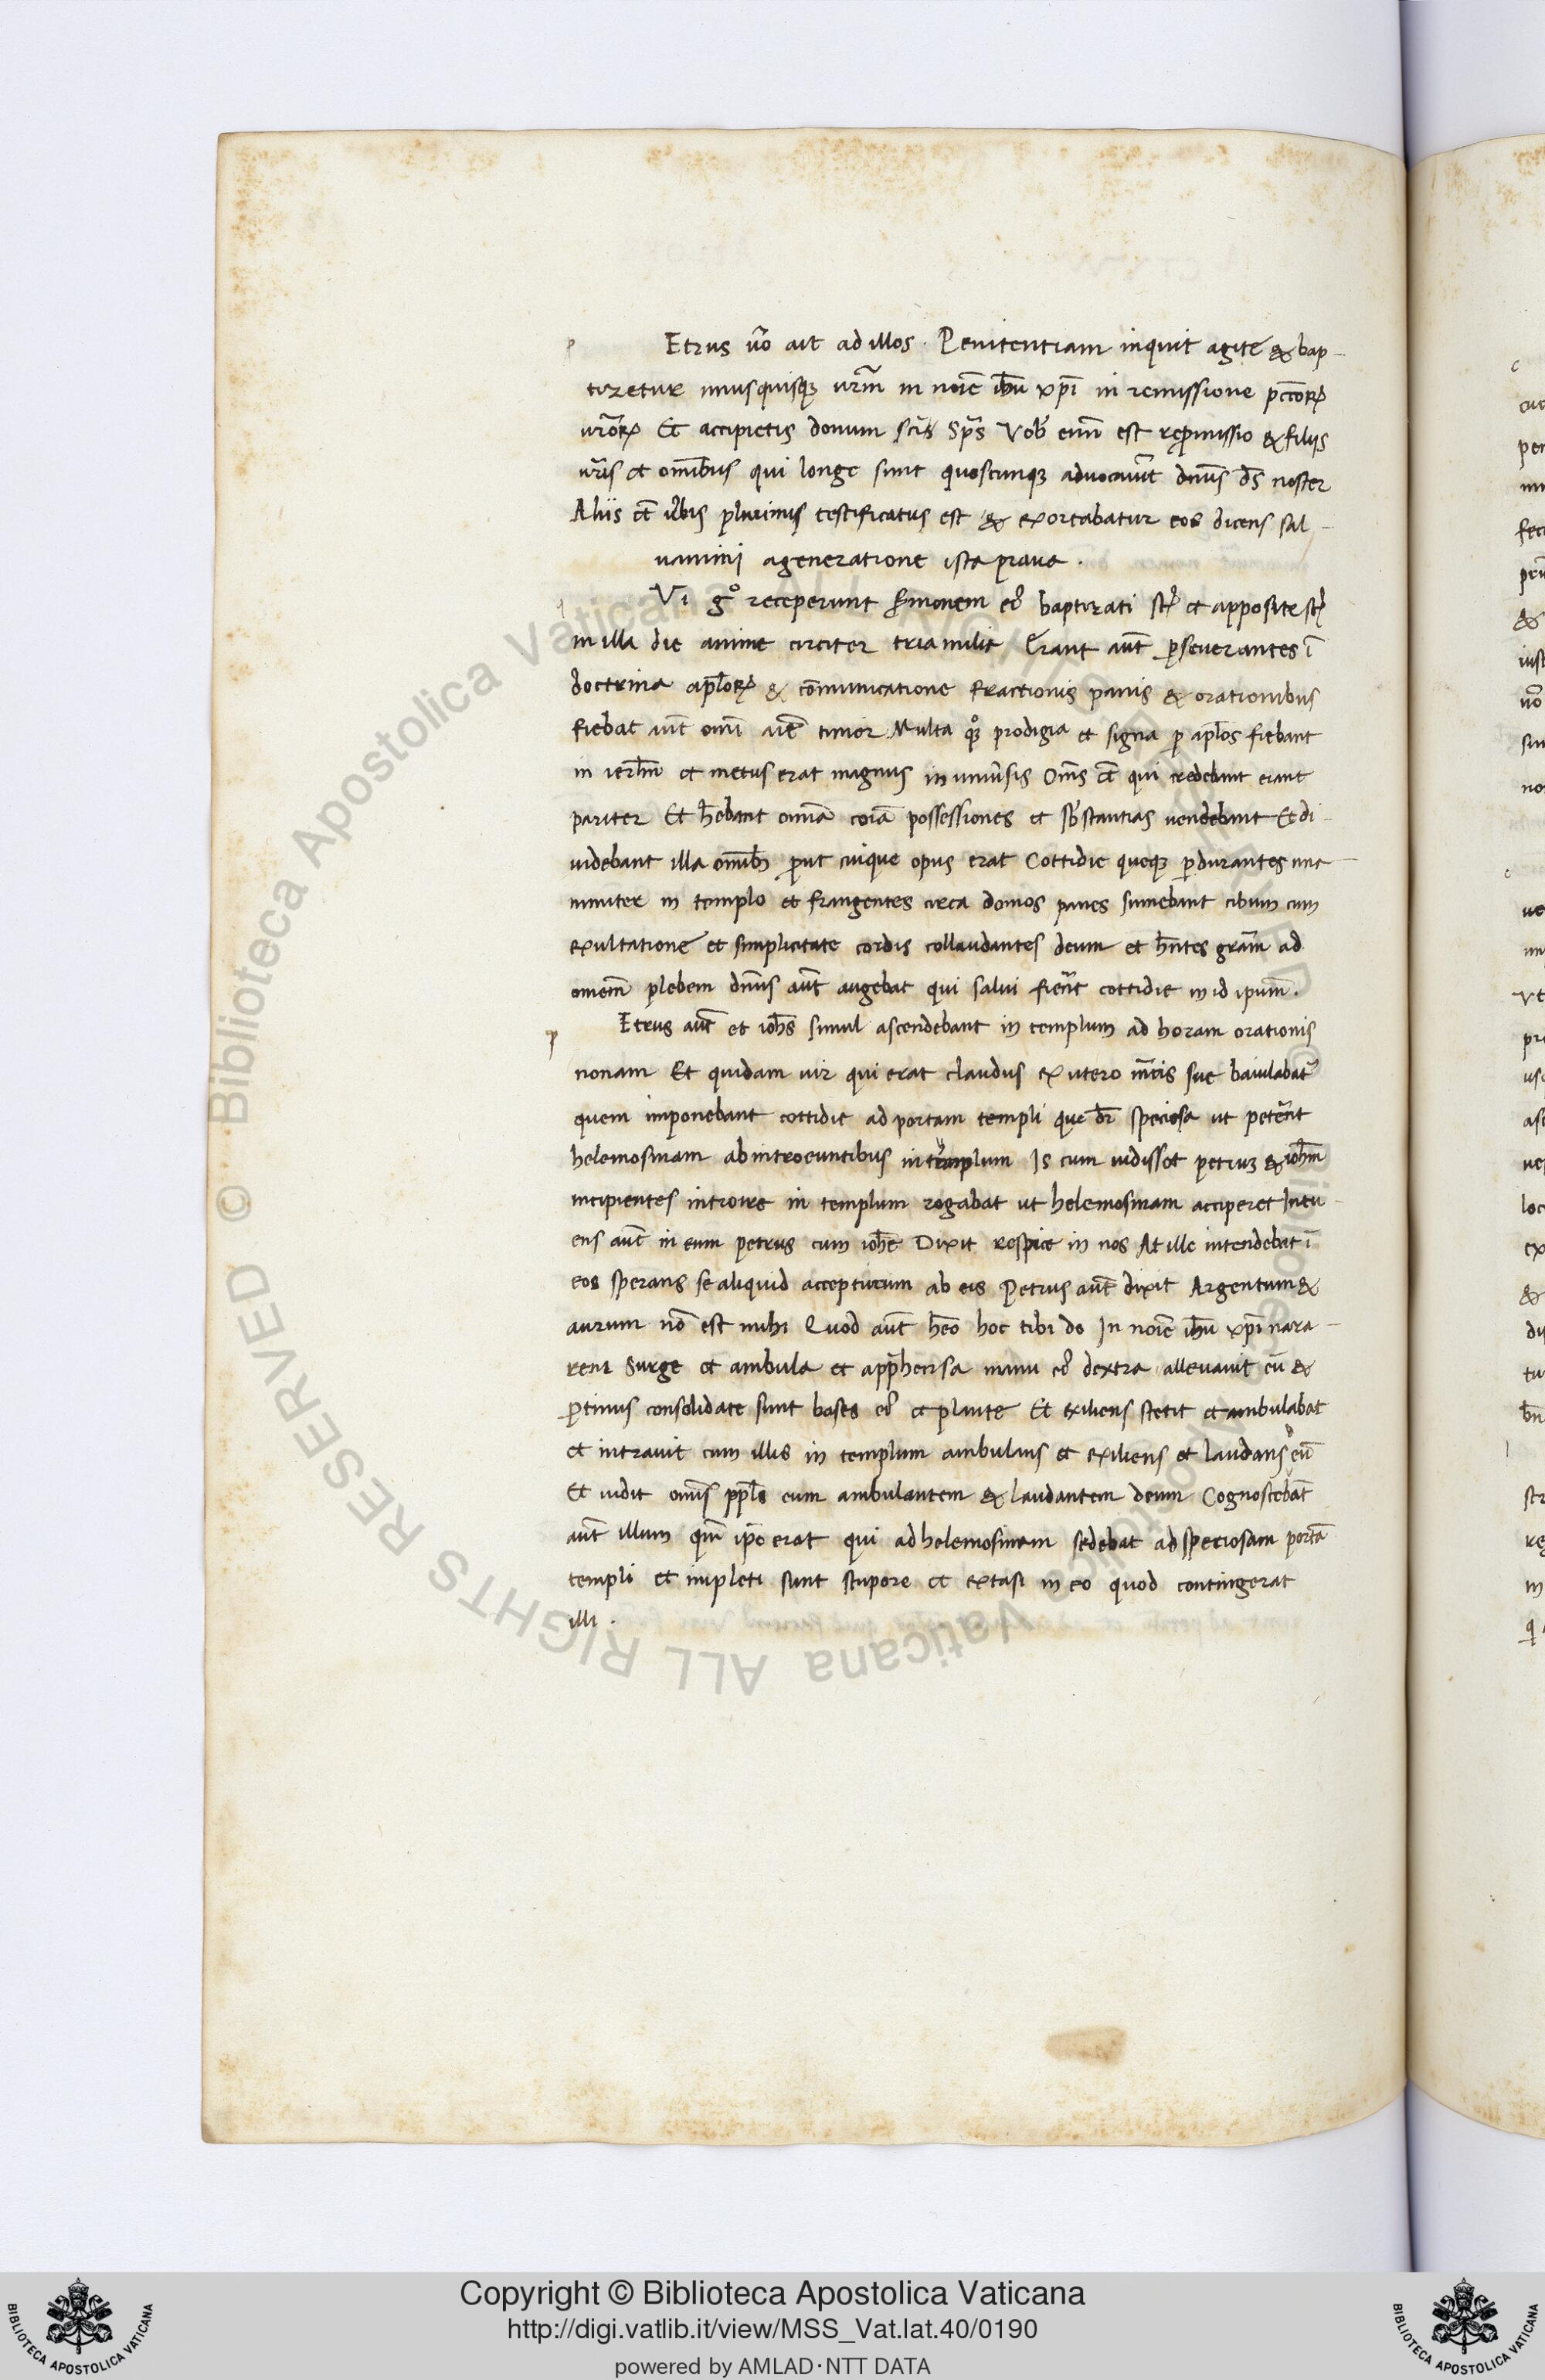 p Etrus ũo ait ad illos. Penitentiam inquit agite & bap-
tizetur unusquisqꝫ ur̃m in noĩe ihũ xp̃i in remissione pc̃torꝝ
ur̃orꝝ Et accipietis donum sc̃is sp̃s Vob̃ enĩ est rep̃missio & filijs
ur̃is et om̃ibus qui longe sunt quoscunqꝫ aduocauit̃ dñus d̃s noster
Aliis et̃ ũbis plurimis testificatus est & exortabatur eos dicens sal-
uamini a generatione ista praua.
Vi gͦ receperunt s̃monem eꝰ baptizati st̃ et apposite st̃
in illa die anime circiter tria milia Erant aut̃ ꝑseuerantes ĩ
doctrina apl̃orꝝ & cõmunicatione fractionis panis & orationibus
fiebat aut̃ om̃i aĩe timor Multa qͦqꝫ prodigia et signa ꝑ apl̃os fiebant
in ierl̃m et metus erat magnus in uniũsis Om̃s et̃ qui credebant erant
pariter Et h̃ebant omĩa coĩa possessiones et sb̃stantias uendebant Et di-
uidebant illa omĩbꝫ ꝓut cuique opus erat Cottidie queqꝫ ꝑdurantes una-
nimiter in templo et frangentes circa domos panes sumebant cibum cum
exultatione et simplicitate cordis collaudantes deum et h̃ntes gram̃ ad
omem̃ plebem dñus aut̃ augebat qui salui fier̃nt cottidie in id ipsum̃.
p Etrus aut̃ et ioh̃s simul ascendebant in templum ad horam orationis
nonam Et quidam uir qui erat claudus ex utero mr̃is sue baiulabat̃
quem imponebant cottidie ad portam templi que dr̃ speciosa ut peter̃et
helemosinam ab introeuntibus in templum Is cum uidisset petrus & ioh̃m
incipientes introire in templum rogabat ut helemosinam acciperet Intu-
ens aut̃ in eum petrus cum ioh̃e Dixit respice in nos At ille intendebat ĩ
eos sperans se aliquid accepturum ab eis Petrus aut̃ dixit Argentum &
aurum nõ est mihi Quod aut̃ h̃eo hoc tibi do In noĩe ihũ xp̃i nara-
reni Surge et ambula et app̃hensa manu eꝰ dextra alleuauit eũ &
ꝓtinus consolidate sunt bases eꝰ et plante Et exiliens stetit et ambulabat
et intrauit cum illis in templum ambulans et exiliens et laudans deũ
Et uidit omĩs ppl̃s eum ambulantem & laudantem deum Cognoscebat̃
aut̃ illum qm̃ ip̃e erat qui ad helemosinam sedebat ad speciosam portã
templi et impleti sunt stupore et extasi in eo quod contingerat
illi.
Copyright © Biblioteca Apostolica Vaticana
http://digi.vatlib.it/view/MSS_Vat.lat.40/0190
powered by AMLAD·NTT DATA
BIBLIOTECA APOSTOLICA VATICANA
BIBLIOTECA APOSTOLICA VATICANA
© Biblioteca Apostolica Vaticana ALL RIGHTS RESERVED
© Biblioteca Apostolica Vaticana ALL RIGHTS RESERVED